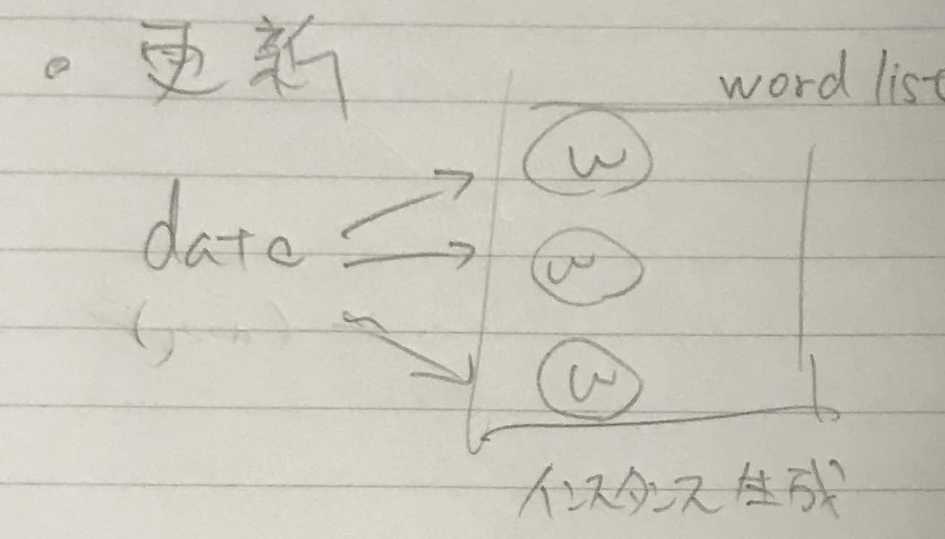 ・更新
word list
w
date
w
w
インスタンス生成